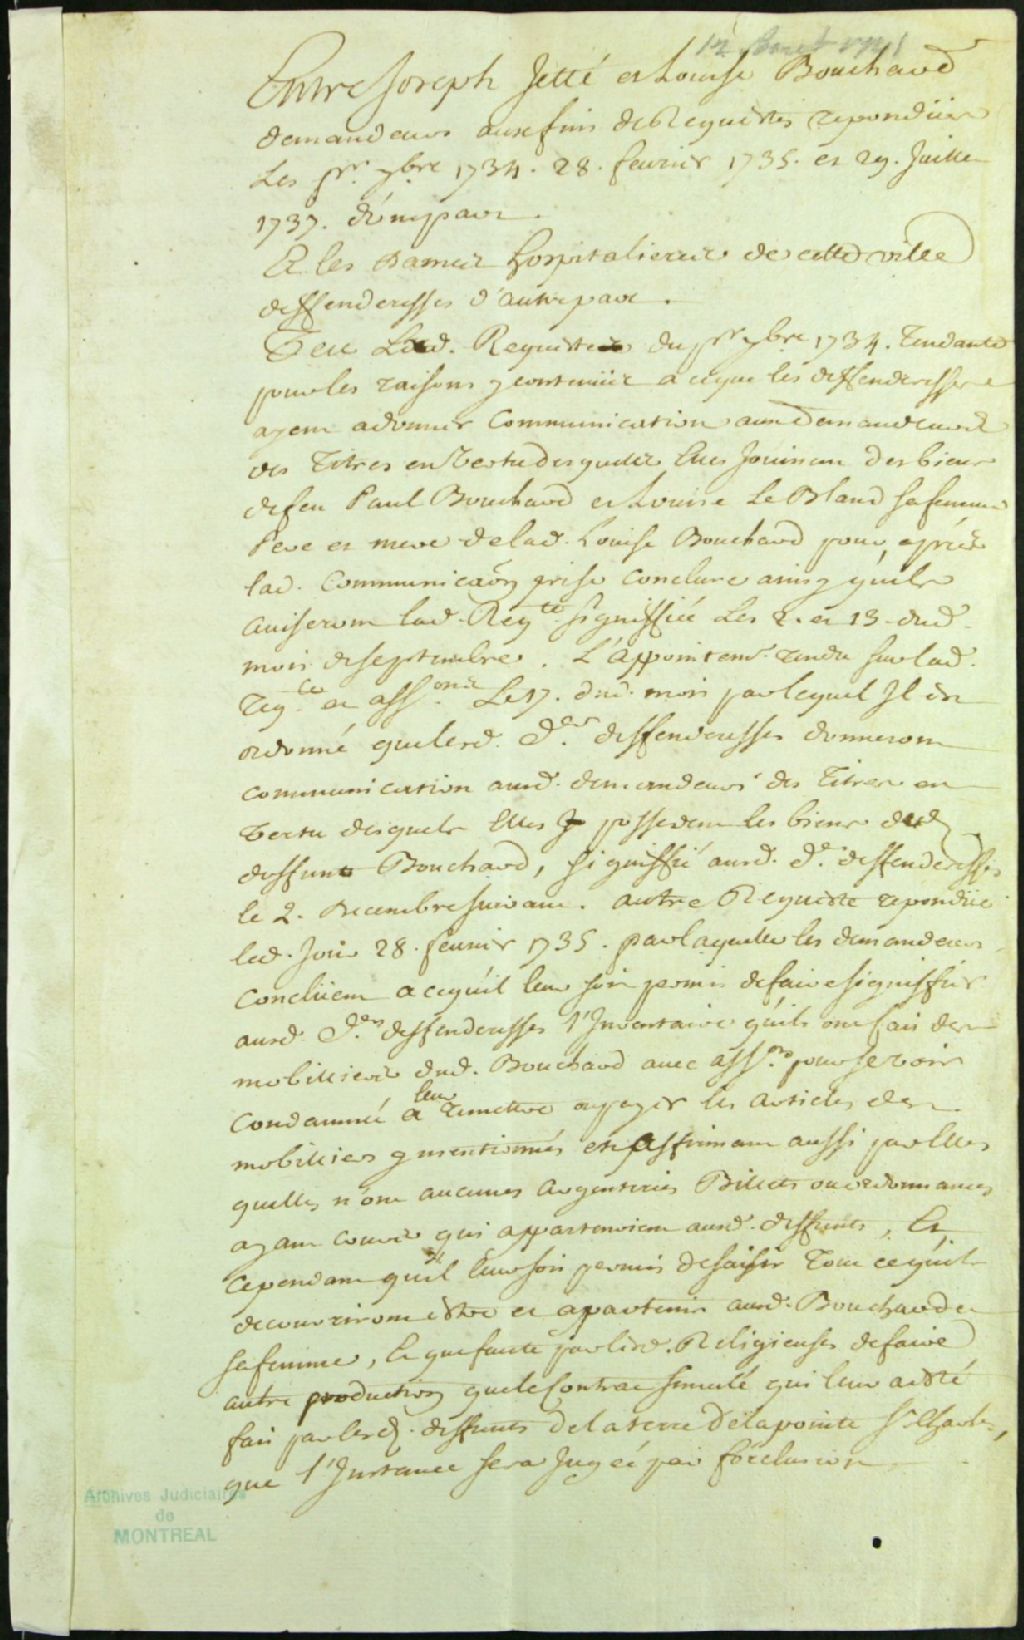 12 Aoust 1741
Entre Joseph Jetté et Louise Bouchard
demandeurs aux fins de Requestes repondües
Les pr. 7bre 1734. 28. fevrier 1735. et 29. Juillet
1737. d'une part.
Et les Dames hospitalieres de cette ville
deffenderesses d'autre part.
Veu Lad. Requeste du pr 7bre 1734. Tendante
pour les raisons y contenües a ce que les deffenderesses
ayent a donner Communication aux demandeurs
des Titres en Vertu desquels Elles Jouissent des biens
de feu Paul Bouchard et Louise Le Blanc sa femme
Pere et mere de lad. Louise Bouchard pour, aprés
lad. Communicaõn prise conclure ainsy qu'ils
aviseront lad. Reqte signiffiée Les 2. et 13. dud.
mois de septembre. L'appointemt. rendu sur lad.
reqte et assonz Le 17. dud. mois par lequel Il est
ordonné que lesd. Des deffenderesses donneront
communication auxd. demandeurs des Titres en
Vertu desquels Elles possedent les biens dud.
deffunt Bouchard, signiffié auxd. Des deffenderesses
le 2. Decembre suivant. autre Requeste repondüe
led. Jour 28. fevrier 1735. par laquelle les demandeurs
concluent a ce qu'il leur soit permis de faire signiffier
auxd. Des deffenderesses l'Inventaire qu'ils ont fait des
mobiliers dud. Bouchard avec asson. pour se voir
Condamné a leur remettre ou payer les articles des
mobiliers y mentionnés en affirmant aussi par Elles
quelles n'ont aucunes argenteries Billets ou ordonnances
ayant cours qui appartenoient auxd. deffunts, Et
cependant qu'il leur soit permis de saisir Tout ce qu'ils
decouvriront estre et apartenir aud. Bouchard et
sa femme, Et que faute par lesd. Religieuses de faire
autre production que le Contrat simulé qui leur a esté
fait par lesd. deffunts de la terre de la pointe St. Charles,
que l'Instance sera Jugée par forclusion
Archives Judiciaires
de
MONTREAL